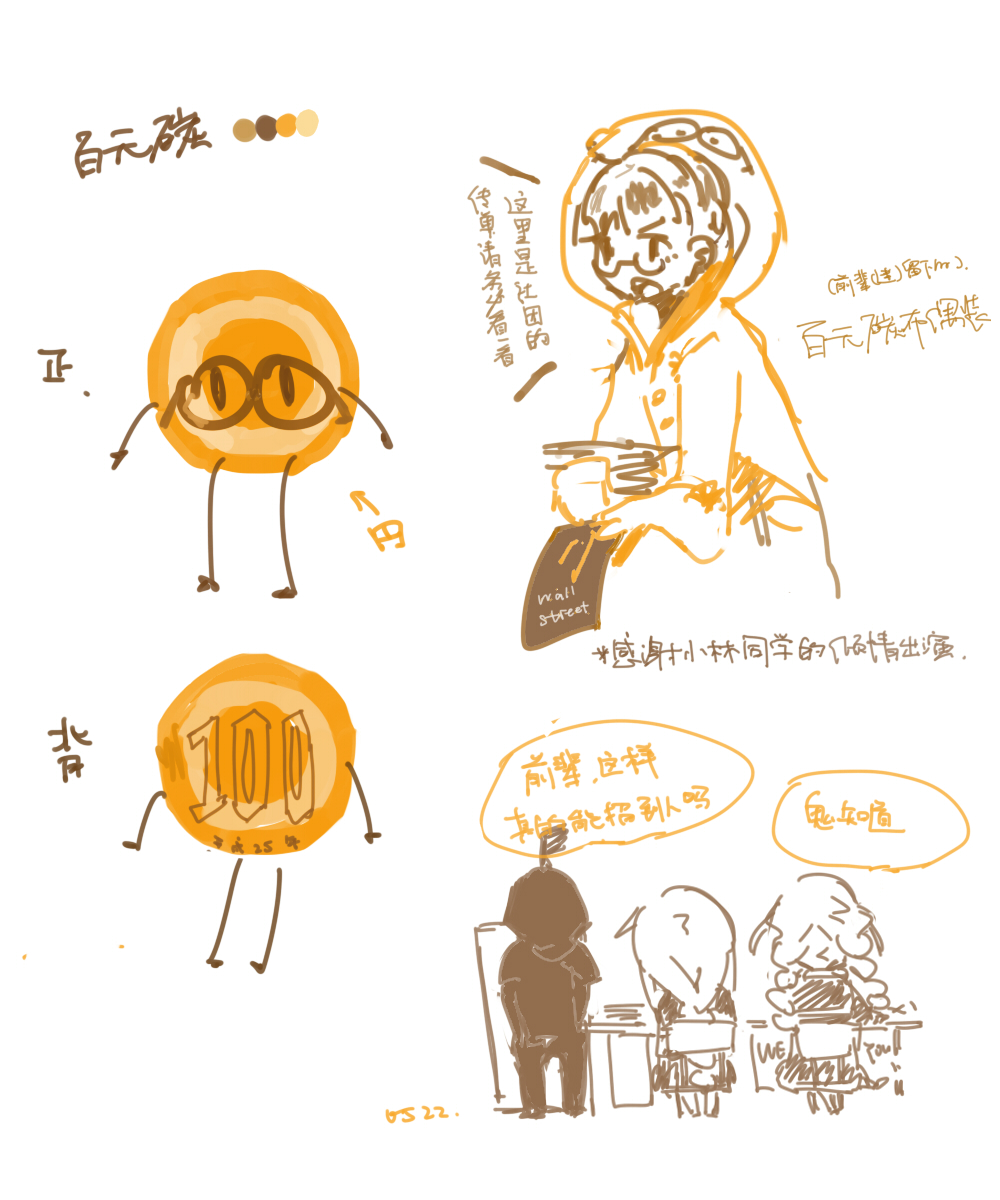 百元碳
正.
円
背
100
平成25年
这里是社团的
传单请务必看一看
(前辈(送)留下的).
百元碳布偶装
wall
street
*感谢小林同学的倾情出演.
前辈,这样
真的能招到人吗
鬼知道
WE
YOU
0522.